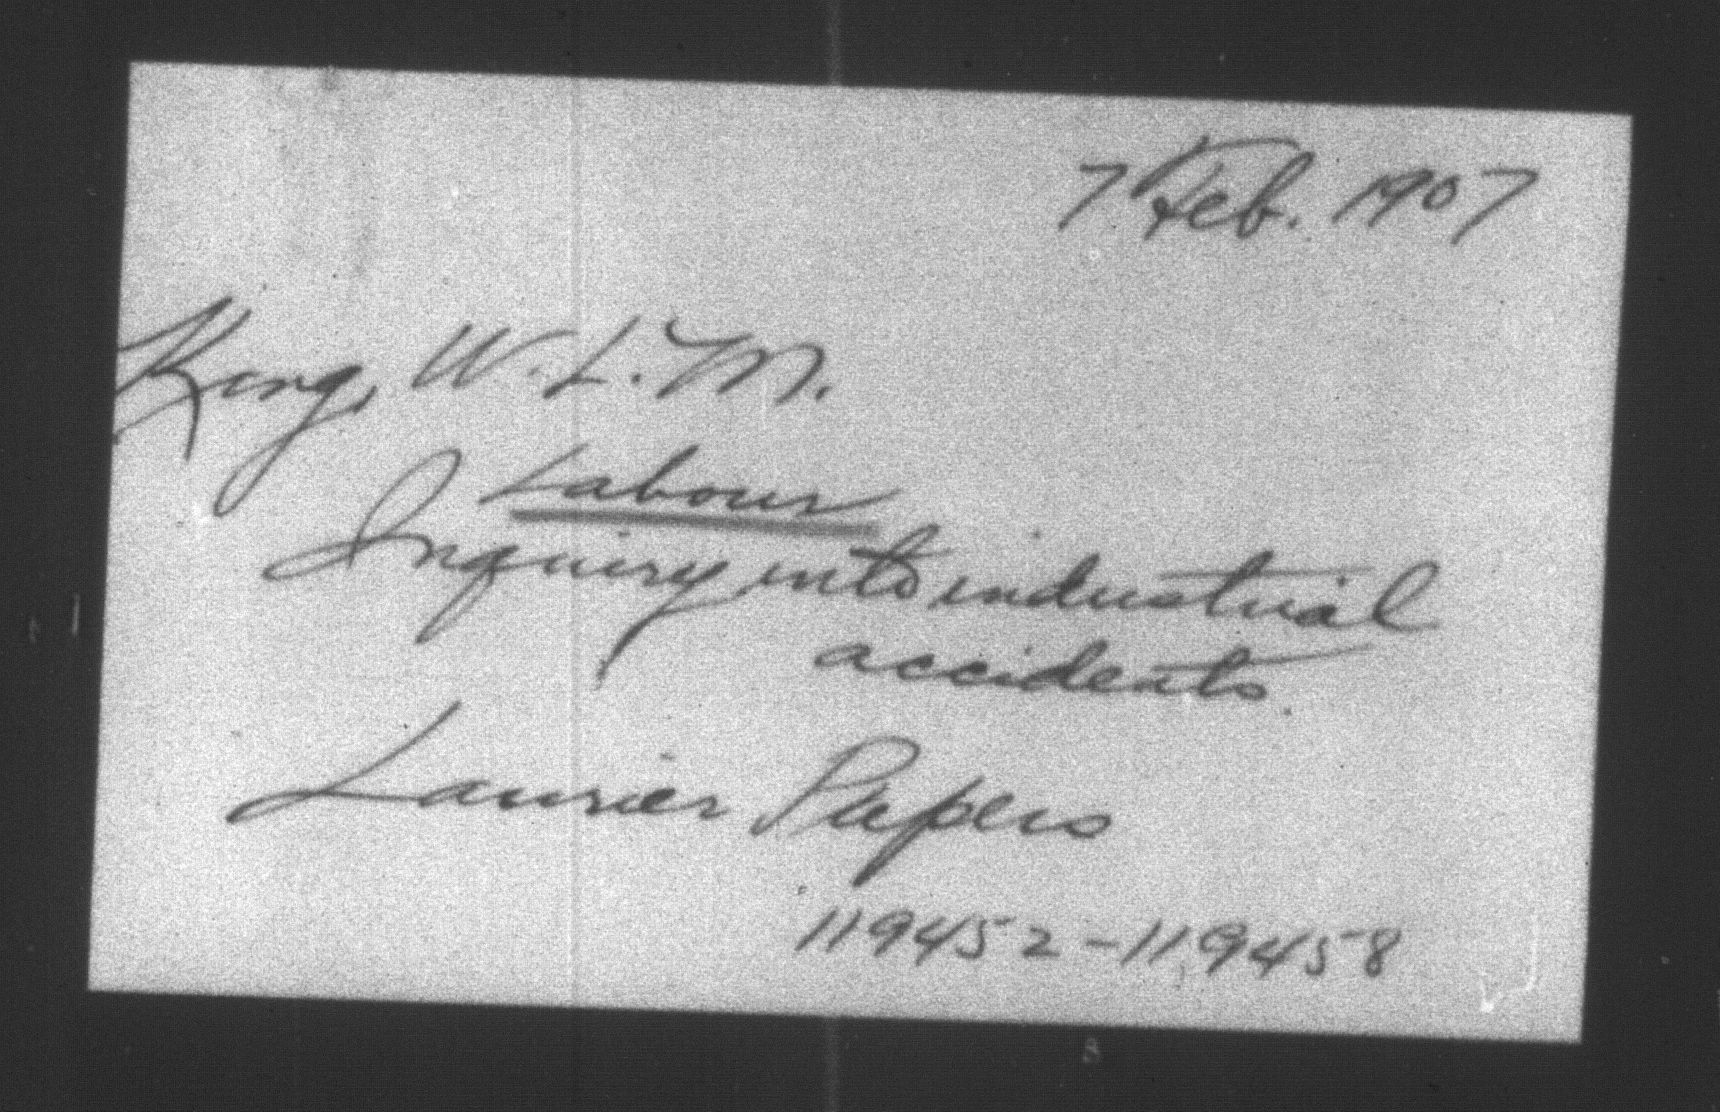 7 Feb. 1907
King, W. L. M.
Labour
Inquiry into industrial
accidents.
Laurier Papers
119452-119458